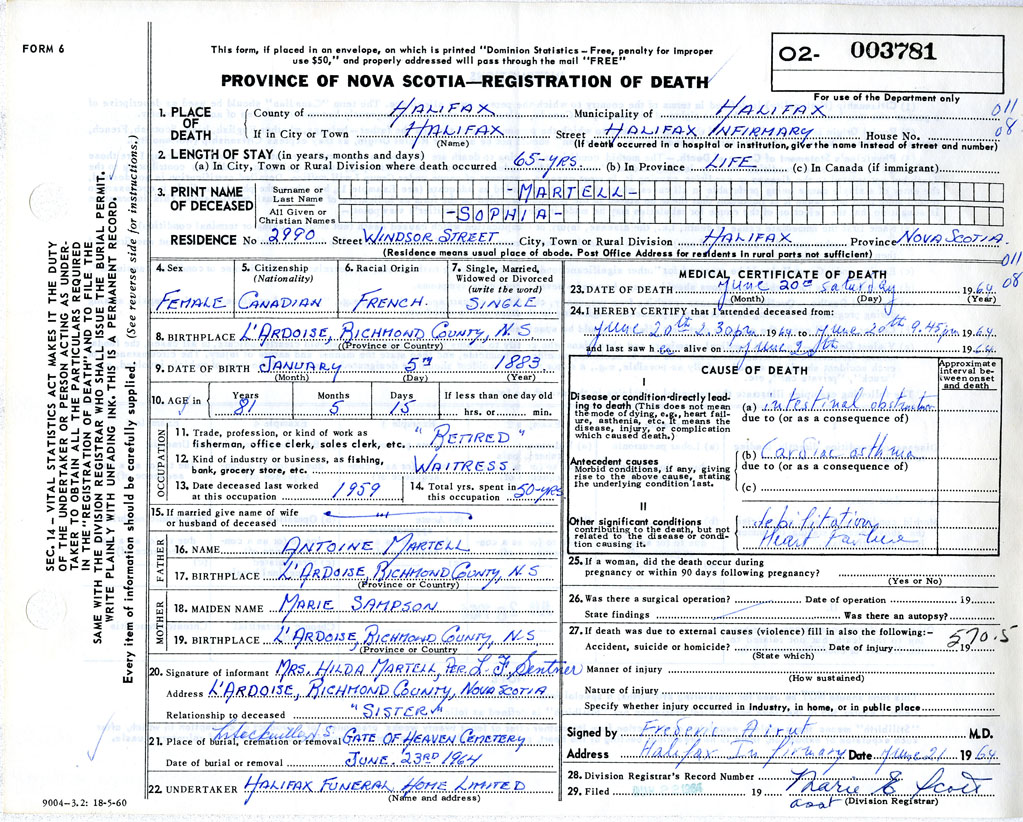 FORM 6
This form, if placed in an envelope, on which is printed "Dominion Statistics – Free, penalty for improper
use $50," and properly addressed will pass through the mail "FREE"
PROVINCE OF NOVA SCOTIA—REGISTRATION OF DEATH
02- 003781
For use of the Department only
011
08
SEC. 14 – VITAL STATISTICS ACT MAKES IT THE DUTY
OF THE UNDERTAKER OR PERSON ACTING AS UNDER-
TAKER TO OBTAIN ALL THE PARTICULARS REQUIRED
IN THE "REGISTRATION OF DEATH" AND TO FILE THE
SAME WITH THE DIVISION REGISTRAR WHO SHALL ISSUE THE BURIAL PERMIT.
WRITE PLAINLY WITH UNFADING INK. THIS IS A PERMANENT RECORD.
Every item of information should be carefully supplied. (See reverse side for instructions.)
1. PLACE OF DEATH
County of HALIFAX Municipality of HALIFAX
If in City or Town HALIFAX Street HALIFAX INFIRMARY House No.
(Name) (If death occurred in a hospital or institution, give the name instead of street and number)
2. LENGTH OF STAY (in years, months and days)
(a) In City, Town or Rural Division where death occurred 65-YRS. (b) In Province LIFE (c) In Canada (if immigrant)
3. PRINT NAME OF DECEASED
Surname or Last Name -MARTELL-
All Given or Christian Names -SOPHIA-
RESIDENCE No 2990 Street WINDSOR STREET City, Town or Rural Division HALIFAX Province NOVA SCOTIA.
(Residence means usual place of abode. Post Office Address for residents in rural parts not sufficient)
011
08
4. Sex
FEMALE
5. Citizenship (Nationality)
CANADIAN
6. Racial Origin
FRENCH.
7. Single, Married, Widowed or Divorced (write the word)
SINGLE
8. BIRTHPLACE L'ARDOISE, RICHMOND COUNTY, N.S
(Province or Country)
9. DATE OF BIRTH JANUARY 5TH 1883
(Month) (Day) (Year)
10. AGE in
Years Months Days If less than one day old
81 5 15 hrs. or min.
OCCUPATION
11. Trade, profession, or kind of work as fisherman, office clerk, sales clerk, etc. "RETIRED"
12. Kind of industry or business, as fishing, bank, grocery store, etc. WAITRESS.
13. Date deceased last worked at this occupation 1959
14. Total yrs. spent in this occupation 50-YRS
15. If married give name of wife or husband of deceased
FATHER
16. NAME ANTOINE MARTELL
17. BIRTHPLACE L'ARDOISE, RICHMOND COUNTY, N.S
(Province or Country)
MOTHER
18. MAIDEN NAME MARIE SAMPSON
19. BIRTHPLACE L'ARDOISE, RICHMOND COUNTY, N.S
(Province or Country
20. Signature of informant MRS. HILDA MARTELL, PER L.F. Sentner
Address L'ARDOISE, RICHMOND COUNTY, NOVA SCOTIA
Relationship to deceased "SISTER"
21. Place of burial, cremation or removal GATE OF HEAVEN CEMETERY
Date of burial or removal JUNE. 23RD 1964
22. UNDERTAKER HALIFAX FUNERAL HOME LIMITED
(Name and address)
9004–3.2: 18-5-60
MEDICAL CERTIFICATE OF DEATH
23. DATE OF DEATH June 20 Saturday 1964
(Month) (Day) (Year)
24. I HEREBY CERTIFY that I attended deceased from:
June 20th 2.30pm 1964 to June 20th 9.45pm 1964
and last saw her alive on June 20th 1964.
CAUSE OF DEATH
Approximate interval between onset and death
I
Disease or condition directly leading to death (This does not mean the mode of dying, e.g., heart failure, asthenia, etc. It means the disease, injury, or complication which caused death.)
(a) intestinal obstruction
due to (or as a consequence of)
Antecedent causes
Morbid conditions, if any, giving rise to the above cause, stating the underlying condition last.
(b) Cardiac asthma
due to (or as a consequence of)
(c)
II
Other significant conditions contributing to the death, but not related to the disease or condition causing it.
Heart Failure
25. If a woman, did the death occur during pregnancy or within 90 days following pregnancy?
(Yes or No)
26. Was there a surgical operation? Date of operation 19
State findings Was there an autopsy?
27. If death was due to external causes (violence) fill in also the following:–
570.5
Accident, suicide or homicide? Date of injury 19
(State which)
Manner of injury
(How sustained)
Nature of injury
Specify whether injury occurred in industry, in home, or in public place
Signed by Frederic M.D.
Address Halifax Infirmary Date June 21 1964.
28. Division Registrar's Record Number
29. Filed 19 Marie E Scott
asst (Division Registrar)